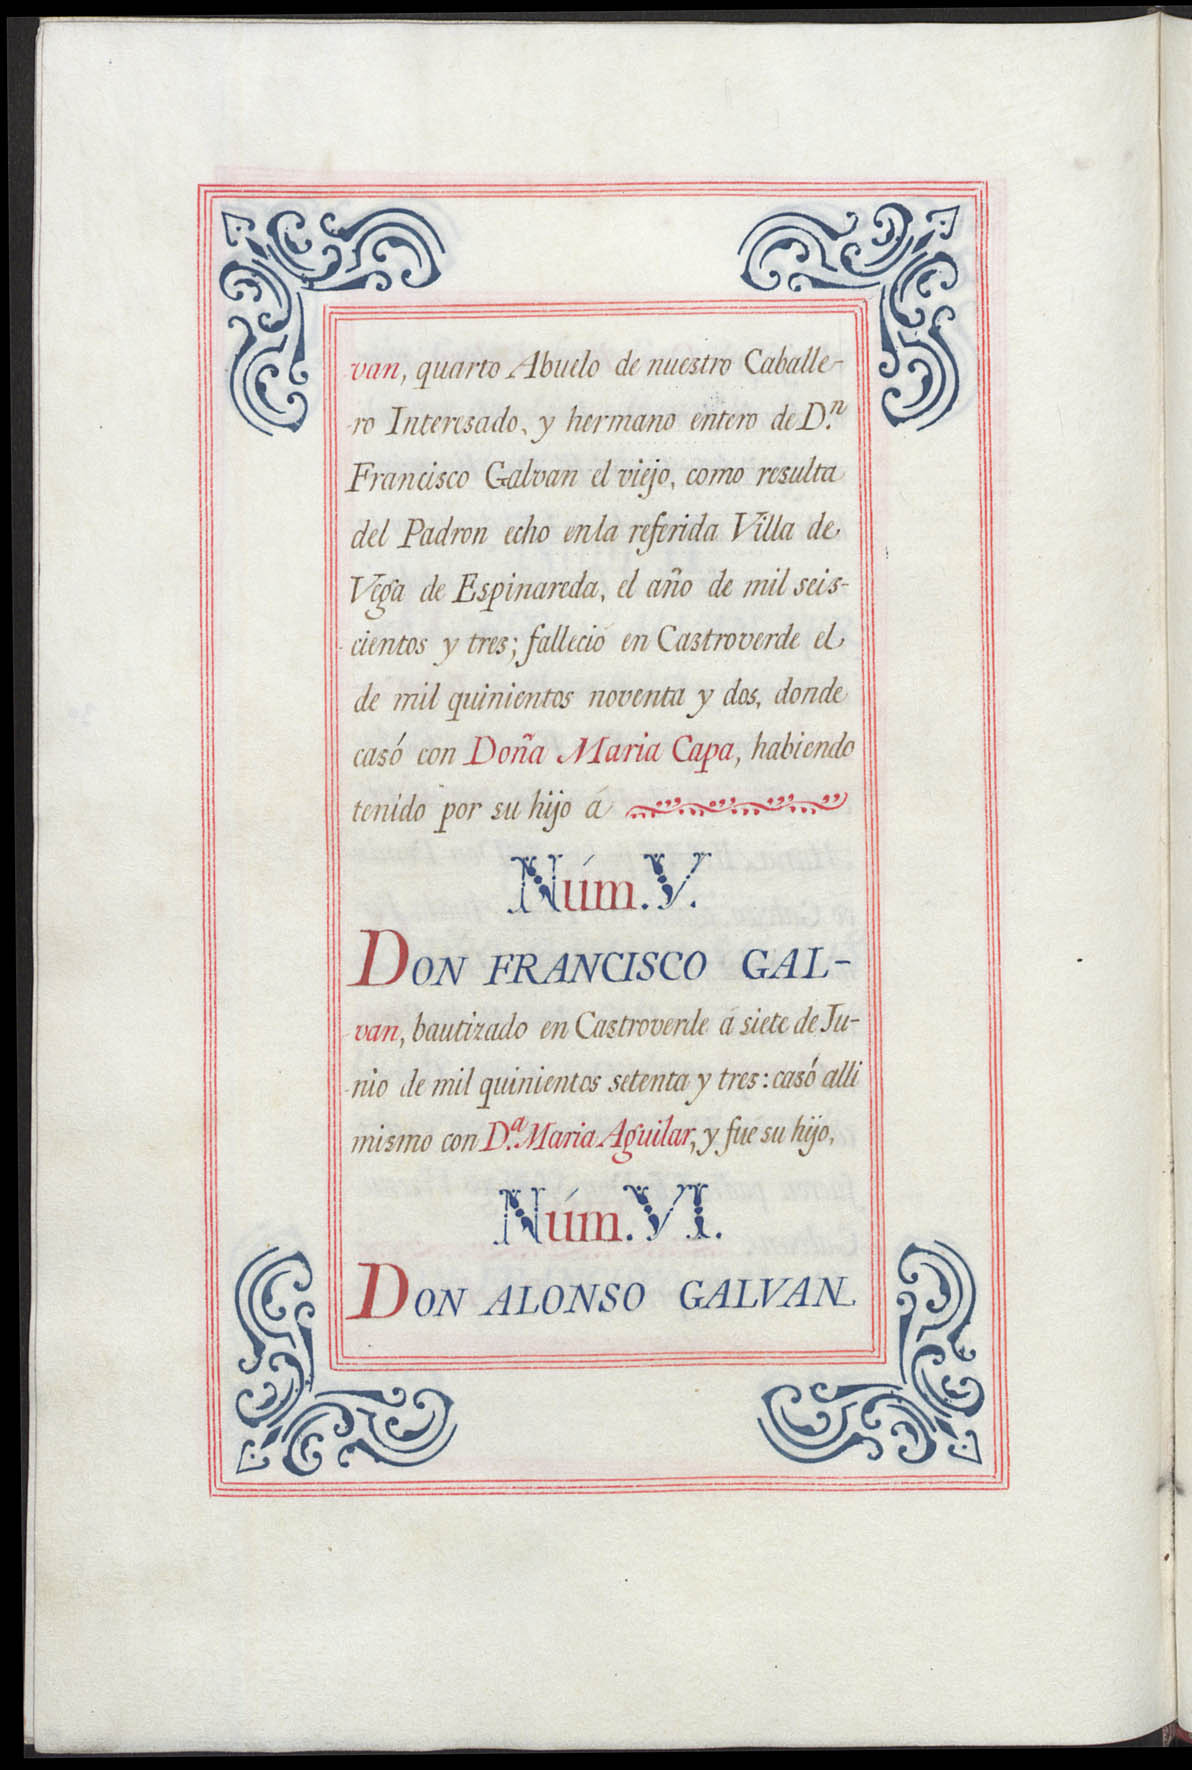 van, quarto Abuelo de nuestro Caballe-
ro Interesado, y hermano entero de D.n
Francisco Galvan el viejo, como resulta
del Padron echo en la referida Villa de
Vega de Espinareda, el año de mil seis-
cientos y tres; falleció en Castroverde el
de mil quinientos noventa y dos, donde
casó con Doña Maria Capa, habiendo
tenido por su hijo á
Núm. V.
DON FRANCISCO GAL-
van, bautizado en Castroverde á siete de Ju-
nio de mil quinientos setenta y tres: casó alli
mismo con D.a Maria Aguilar, y fue su hijo,
Núm. VI.
DON ALONSO GALVAN